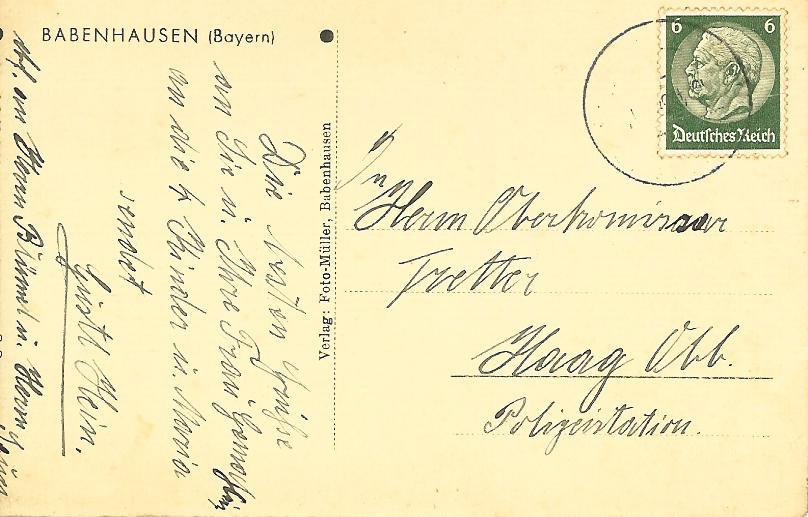 BABENHAUSEN (Bayern)
Die besten Grüße
an Sie u. Ihre Frau Gemahlin,
an die 4 Kinder u. Maria
sendet
Gustl Hein.
an Herrn Blüml u. Herrn
Verlag: Foto-Müller, Babenhausen
6 6
Deutsches Reich
An
Herrn Oberkomissaar
Tretter
Haag Obb.
Polizeistation.